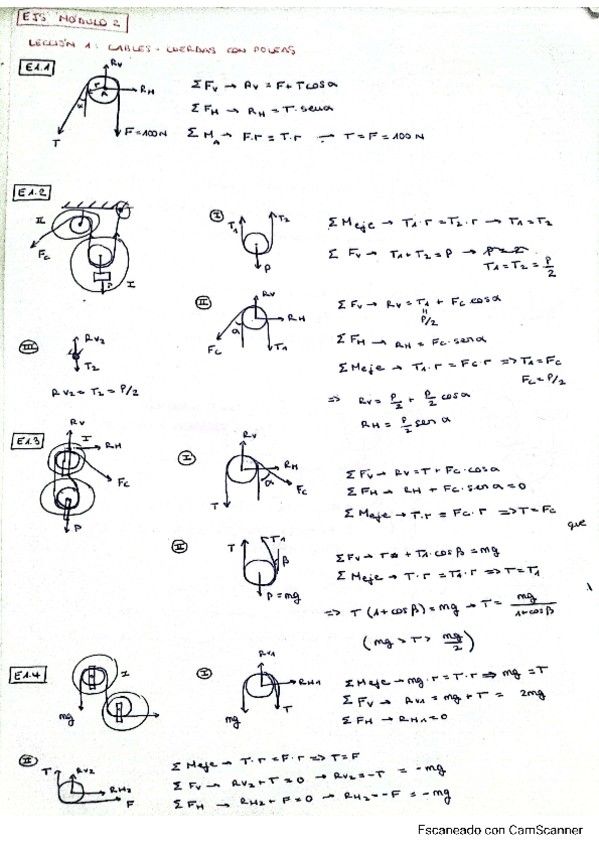 EJS MÓDULO 2
LECCIÓN 1: CABLES - CUERDAS CON POLEAS
E1.1
Rv
r
A
RH
α
T
F=100N
Σ Fv → Rv = F + T cosα
Σ FH → RH = T · senα
Σ M_A → F·r = T·r → T = F = 100N
E1.2
II
Fc
P
I
I
T1
T2
P
Σ Meje → T1·r = T2·r → T1 = T2
Σ Fv → T1 + T2 = P →
T1 = T2 = P/2
II
Rv
RH
α
Fc
T1
Σ Fv → Rv = T1 + Fc cosα
P/2
Σ FH → RH = Fc · senα
Σ Meje → T1·r = Fc·r => T1 = Fc
Fc = P/2
=> Rv = P/2 + P/2 cosα
RH = P/2 senα
III
Rv2
T2
Rv2 = T2 = P/2
E1.3
Rv
I
RH
Fc
P
I
Rv
RH
α
T
Fc
Σ Fv → Rv = T + Fc · cosα
Σ FH → RH + Fc · senα = 0
Σ Meje → T·r = Fc·r => T = Fc
que
II
T
T1
β
P = mg
Σ Fv → T + T1 · cosβ = mg
Σ Meje → T·r = T1·r => T = T1
=> T (1 + cosβ) = mg → T = mg/1+cosβ
(mg > T > mg/2)
E1.4
I
mg
I
Rv1
RH1
mg
T
Σ Meje → mg·r = T·r => mg = T
Σ Fv → Rv1 = mg + T = 2mg
Σ FH → RH1 = 0
II
T
Rv2
RH2
F
Σ Meje → T·r = F·r => T = F
Σ Fv → Rv2 + T = 0 → Rv2 = -T = -mg
Σ FH → RH2 + F = 0 → RH2 = -F = -mg
Escaneado con CamScanner